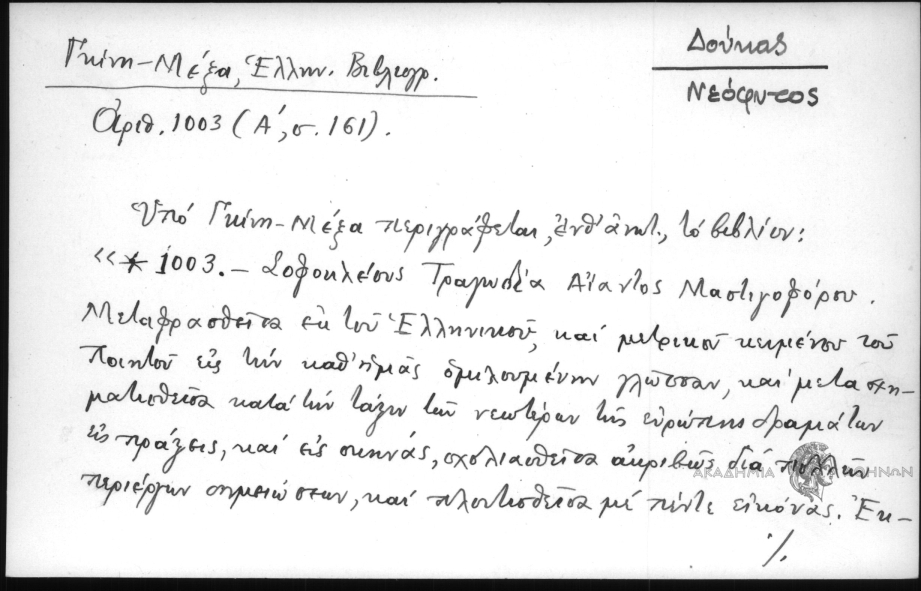 Γκίνη-Μέξα, Ἑλλην. Βιβλιογρ.
Ἀριθ. 1003 (Α΄, σ. 161).
Δούκας
Νεόφυτος
Ὑπό Γκίνη-Μέξα περιγράφεται, ἐνθ' ἀνωτ., τό βιβλίον:
«* 1003. – Σοφοκλέους Τραγωδία Αἴαντος Μαστιγοφόρου.
Μεταφρασθεῖσα ἐκ τοῦ Ἑλληνικοῦ, καί μετρικοῦ κειμένου τοῦ
Ποιητοῦ εἰς τήν καθ' ἡμᾶς ὁμιλουμένην γλῶσσαν, καί μετασχη-
ματισθεῖσα κατά τήν τάξιν τῶν νεωτέρων τῆς εὐρώπης δραμάτων
εἰς πράξεις, καί εἰς σκηνάς, σχολιασθεῖσα ἀκριβῶς διά πολλῶν
περιέργων σημειώσεων, καί πλουτισθεῖσα μέ πέντε εἰκόνας. Ἐκ-
./.
ΑΚΑΔΗΜΙΑ ΑΘΗΝΩΝ